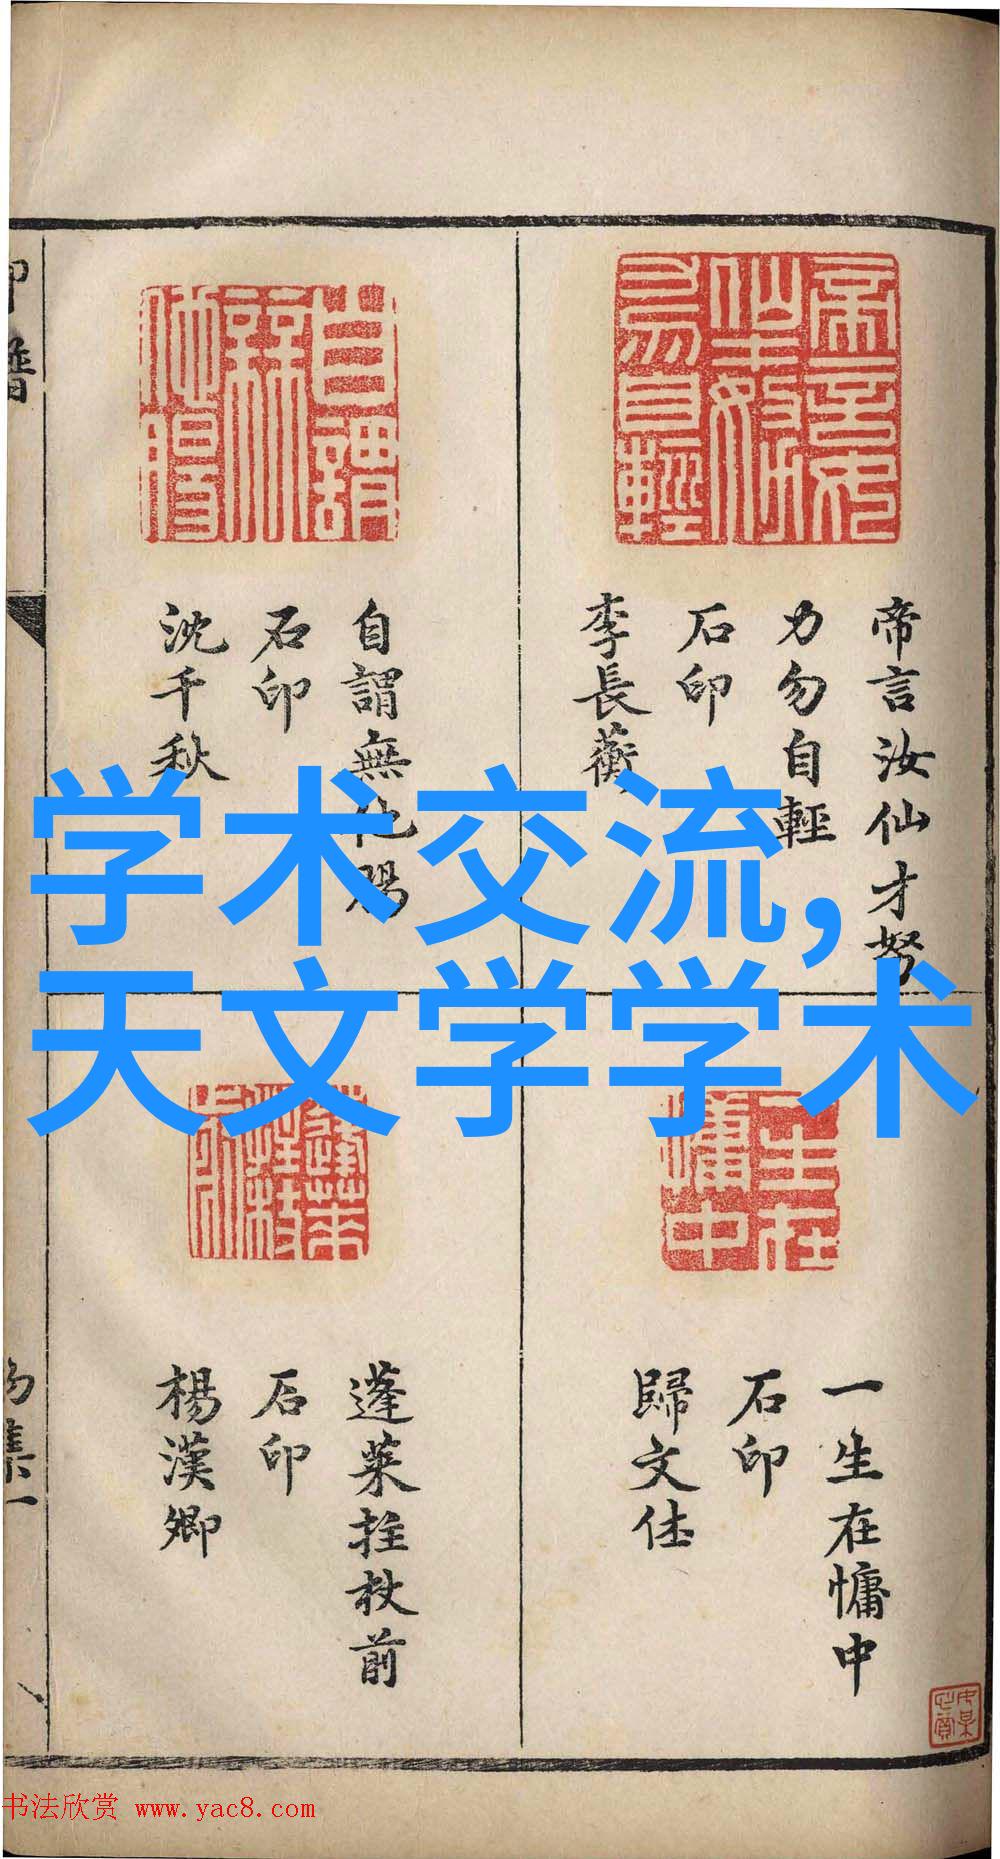 帝言汝仙才努
力勿自輕
石印
李長蘅
自謂無他腸
石印
沈千秋
学术交流,
天文学学术
一生在慵中
石印
歸文休
蓬萊拄杖前
石印
楊漢卿
书法欣赏 www.yac8.com